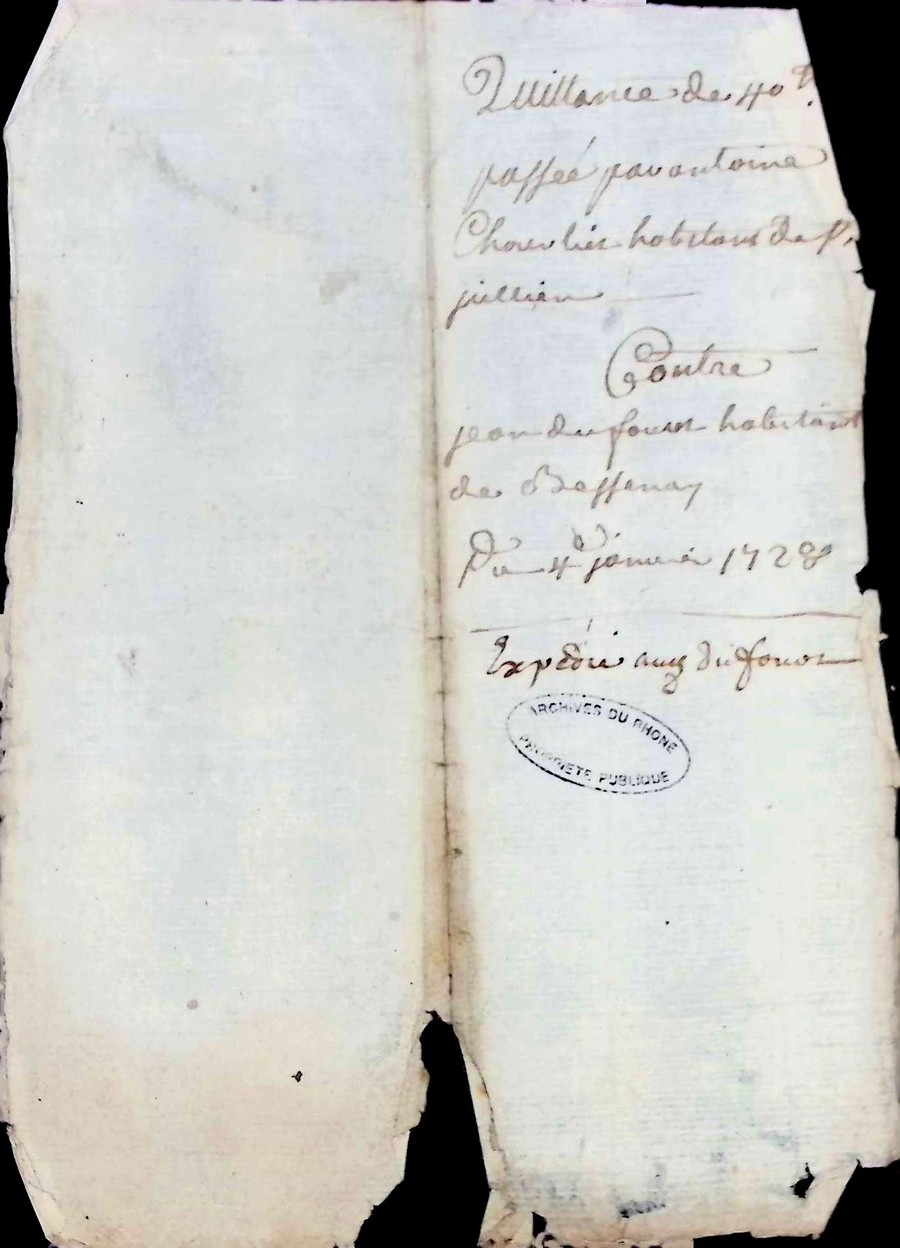 Quittance de 40 ₶.
passée par antoine
Chevalier habitant de St.
jullien
Contre
jean du fournel habitant
de Bessenay
Du 4e janvier 1728
Expedié au du fournel
ARCHIVES DU RHONE
PROPRIETE PUBLIQUE